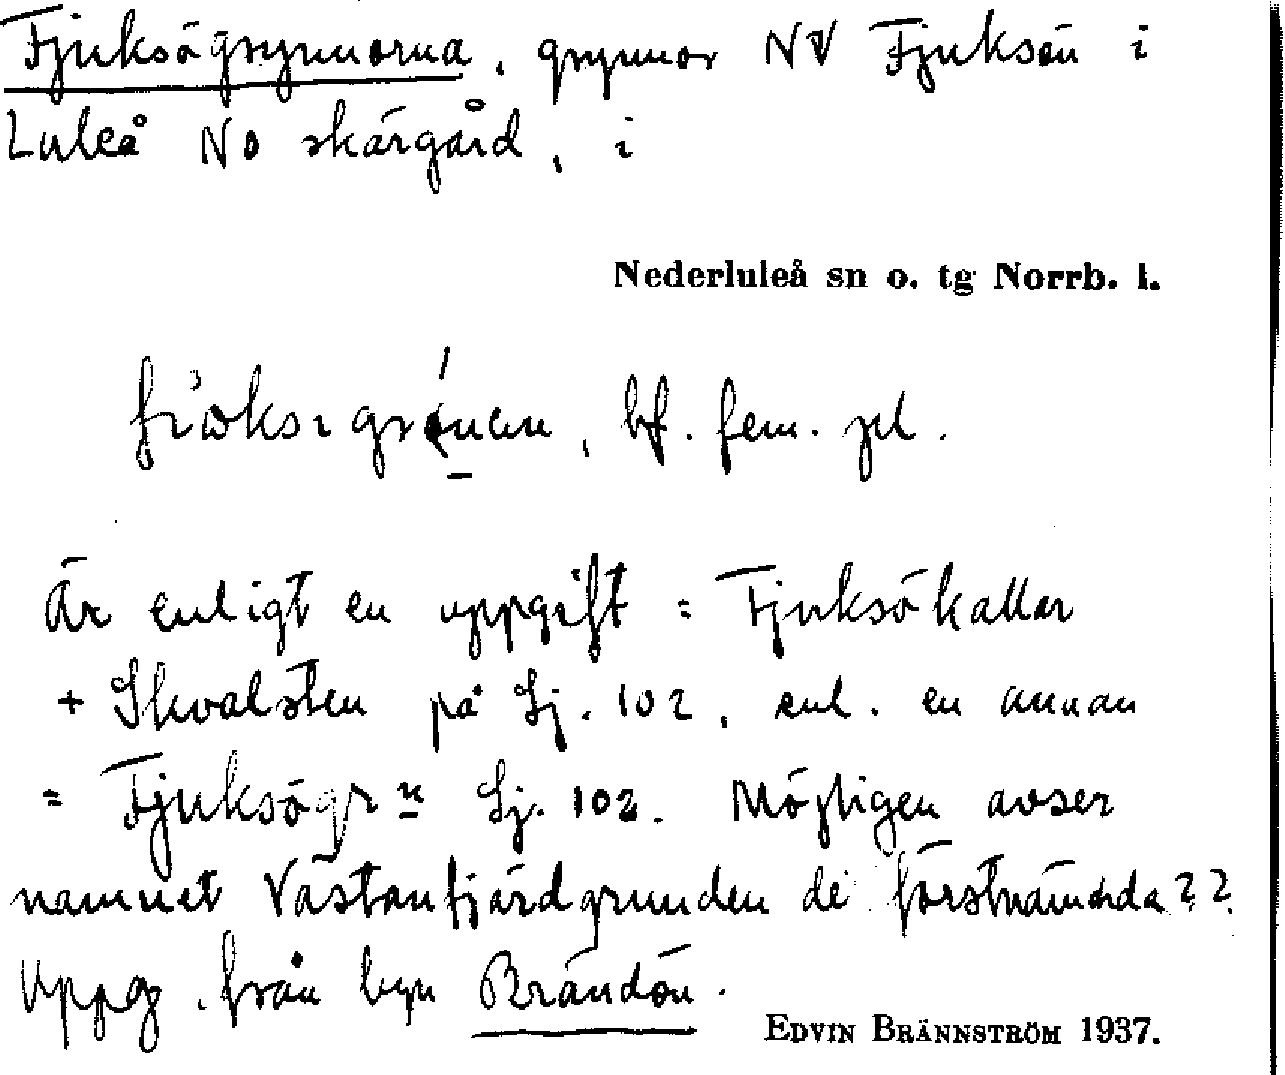 Fjuksögrynnorna, grynnor NV Fjuksön i
Luleå NO skärgård, i
Nederluleå sn o. tg Norrb. l.
bf. fem. pl.
Är enligt en uppgift = Fjuksökallar
+ Skvalsten på Sj. 102, enl. en annan
= Fjuksögrn Sj. 102. Möjligen avser
namnet Västanfjärdgrunden de förstnämnda??
Uppg. från byn Brändön.
EDVIN BRÄNNSTRÖM 1937.